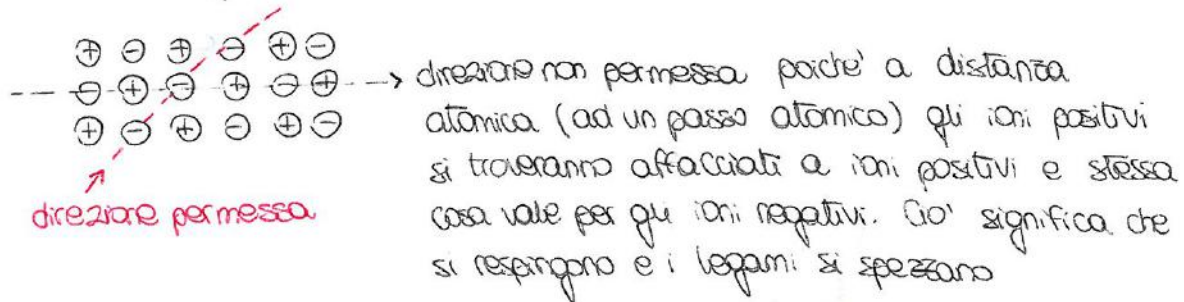 ⊕ ⊖ ⊕ ⊖ ⊕ ⊖
⊖ ⊕ ⊖ ⊕ ⊖ ⊕
⊕ ⊖ ⊕ ⊖ ⊕ ⊖
direzione permessa
direzione non permessa poiche' a distanza
atomica (ad un passo atomico) gli ioni positivi
si troveranno affacciati a ioni positivi e stessa
cosa vale per gli ioni negativi. Cio' significa che
si respingono e i legami si spezzano